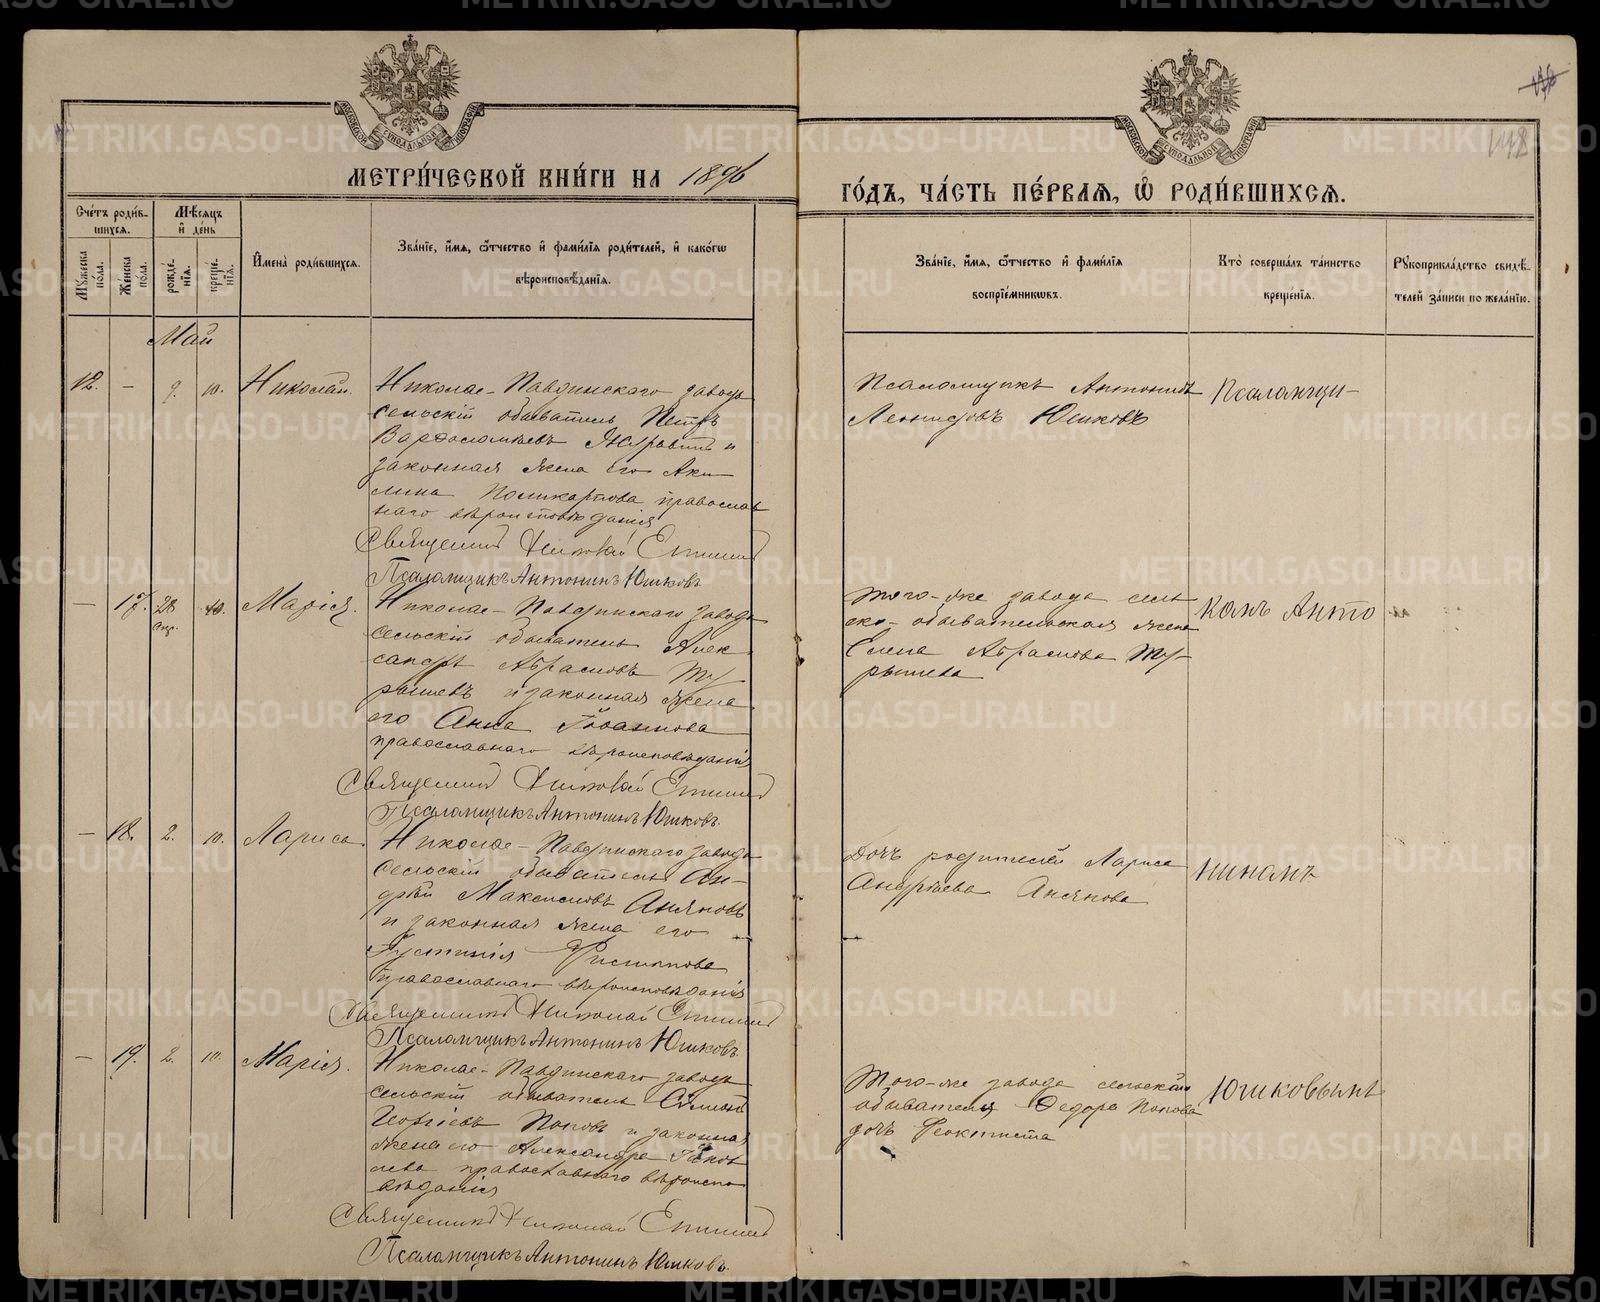 МЕТРИ́ЧЕСКОЙ КНИ́ГИ НА 1896
ГО́ДЪ, ЧА́СТЬ ПЕ́РВАЯ, Ѽ РОДИ́ВШИХСЯ.
Сче́тъ роди́в-
шихся.
Мѣсяцъ
и҆ день
Мꙋжеска
пола.
Женска
пола.
рожде́-
нїѧ.
креще́-
нїѧ.
И҆мена̀ роди́вшихсѧ.
Зва́нїе, и҆́мѧ, ѻ҆́тчество и҆ фами́лїѧ роди́телей, и҆ како́гѡ
вѣроисповѣ́данїѧ.
Зва́нїе, и҆́мѧ, ѻ҆́тчество и҆ фами́лїѧ
воспрїе́мникѡвъ.
Кто̀ соверша́лъ та́инство
креще́нїѧ.
Рꙋкоприкла́дство свидѣ́-
телей за́писи по жела́нїю.
148
Май
12. – 9. 10. Николай.
Николае-Павдинскаго завода
сельскій обыватель Петръ
Варфоломѣевъ и
законная жена его Аки
лина Поликарпова православ
наго вѣроисповѣданія
Священникъ Николай
Псаломщикъ Антонинъ Юшковъ
Псаломщикъ Антонинъ
Леонидовъ Юшковъ
Псаломщи-
– 17. 28 Апр. 10. Марія.
Николае-Павдинскаго завода
сельскій обыватель Алек
сандръ Абрамовъ Ту
рышевъ и законная жена
его Анна Іоаннова
православнаго вѣроисповѣданія
Священникъ Николай
Псаломщикъ Антонинъ Юшковъ.
Того-же завода сель
ско-обывательская жена
Елена Абрамова Ту-
рышева
комъ Анто
– 18. 2. 10. Лариса
Николае-Павдинскаго завода
сельскій обыватель Ан-
дрей Максимовъ Аксяновъ
и законная жена его
Іустинія
православнаго вѣроисповѣданія
Священникъ Николай
Псаломщикъ Антонинъ Юшковъ.
Дочь родителей Лариса
Андреева Аксянова
ниномъ
– 19. 2. 10. Марія.
Николае-Павдинскаго завода
сельскій обыватель Симеонъ
Георгіевъ Поповъ и законная
жена его Александра Іаков
лева православнаго вѣроиспо
вѣданія
Священникъ Николай
Псаломщикъ Антонинъ Юшковъ.
Того-же завода сельскаго
обывателя Федора Попова
дочь Феоктиста
Юшковымъ
METRIKI.GASO-URAL.RU